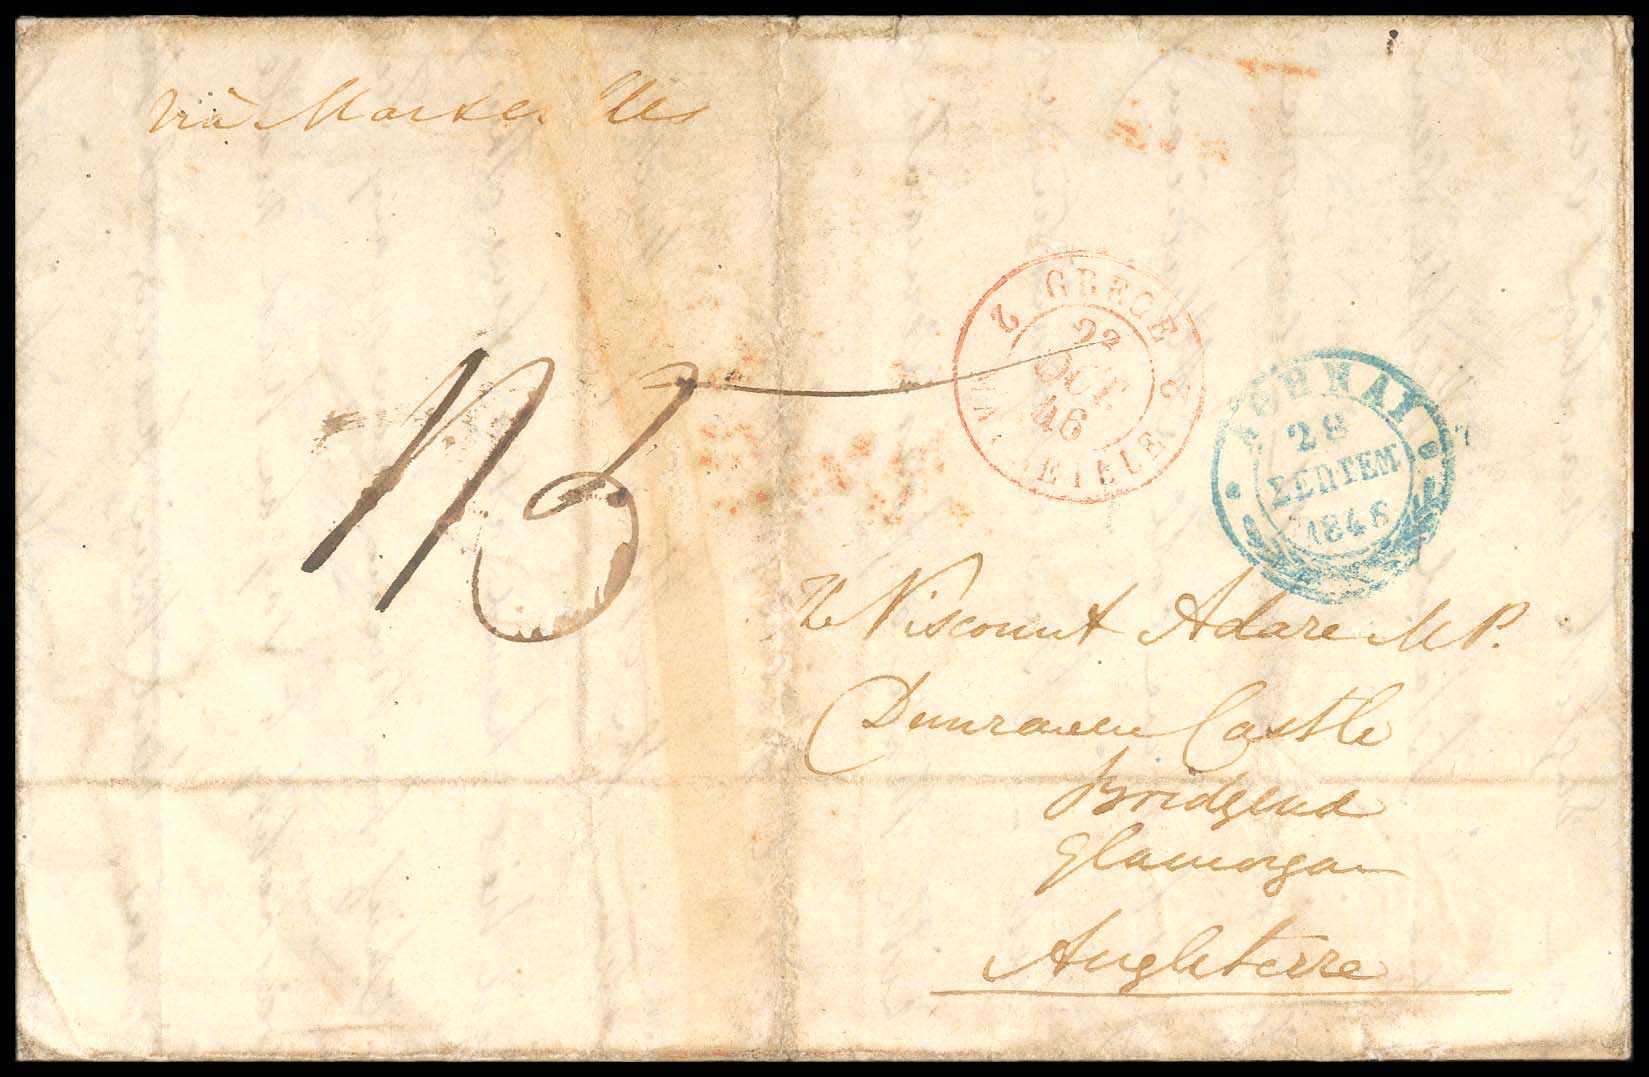 viâ Marseilles
2 GRECE 2
22
OCT.
46
MARSEILLE
ΑΘΗΝΑΙ
28
ΣΕΠΤΕΜ
1846
Viscount Adare M P.
Dunraven Castle
Bridgend
Glamorgan
Angleterre